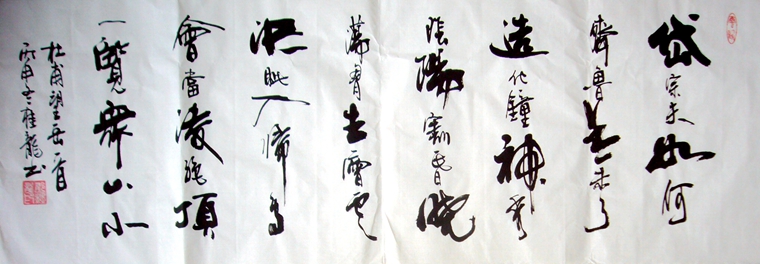 岱宗夫如何
齊魯青未了
造化鐘神秀
陰陽割昏曉
蕩胷生曾雲
決眦入歸鳥
會當凌絕頂
一覽眾山小
杜甫望岳一首
丙申龍書